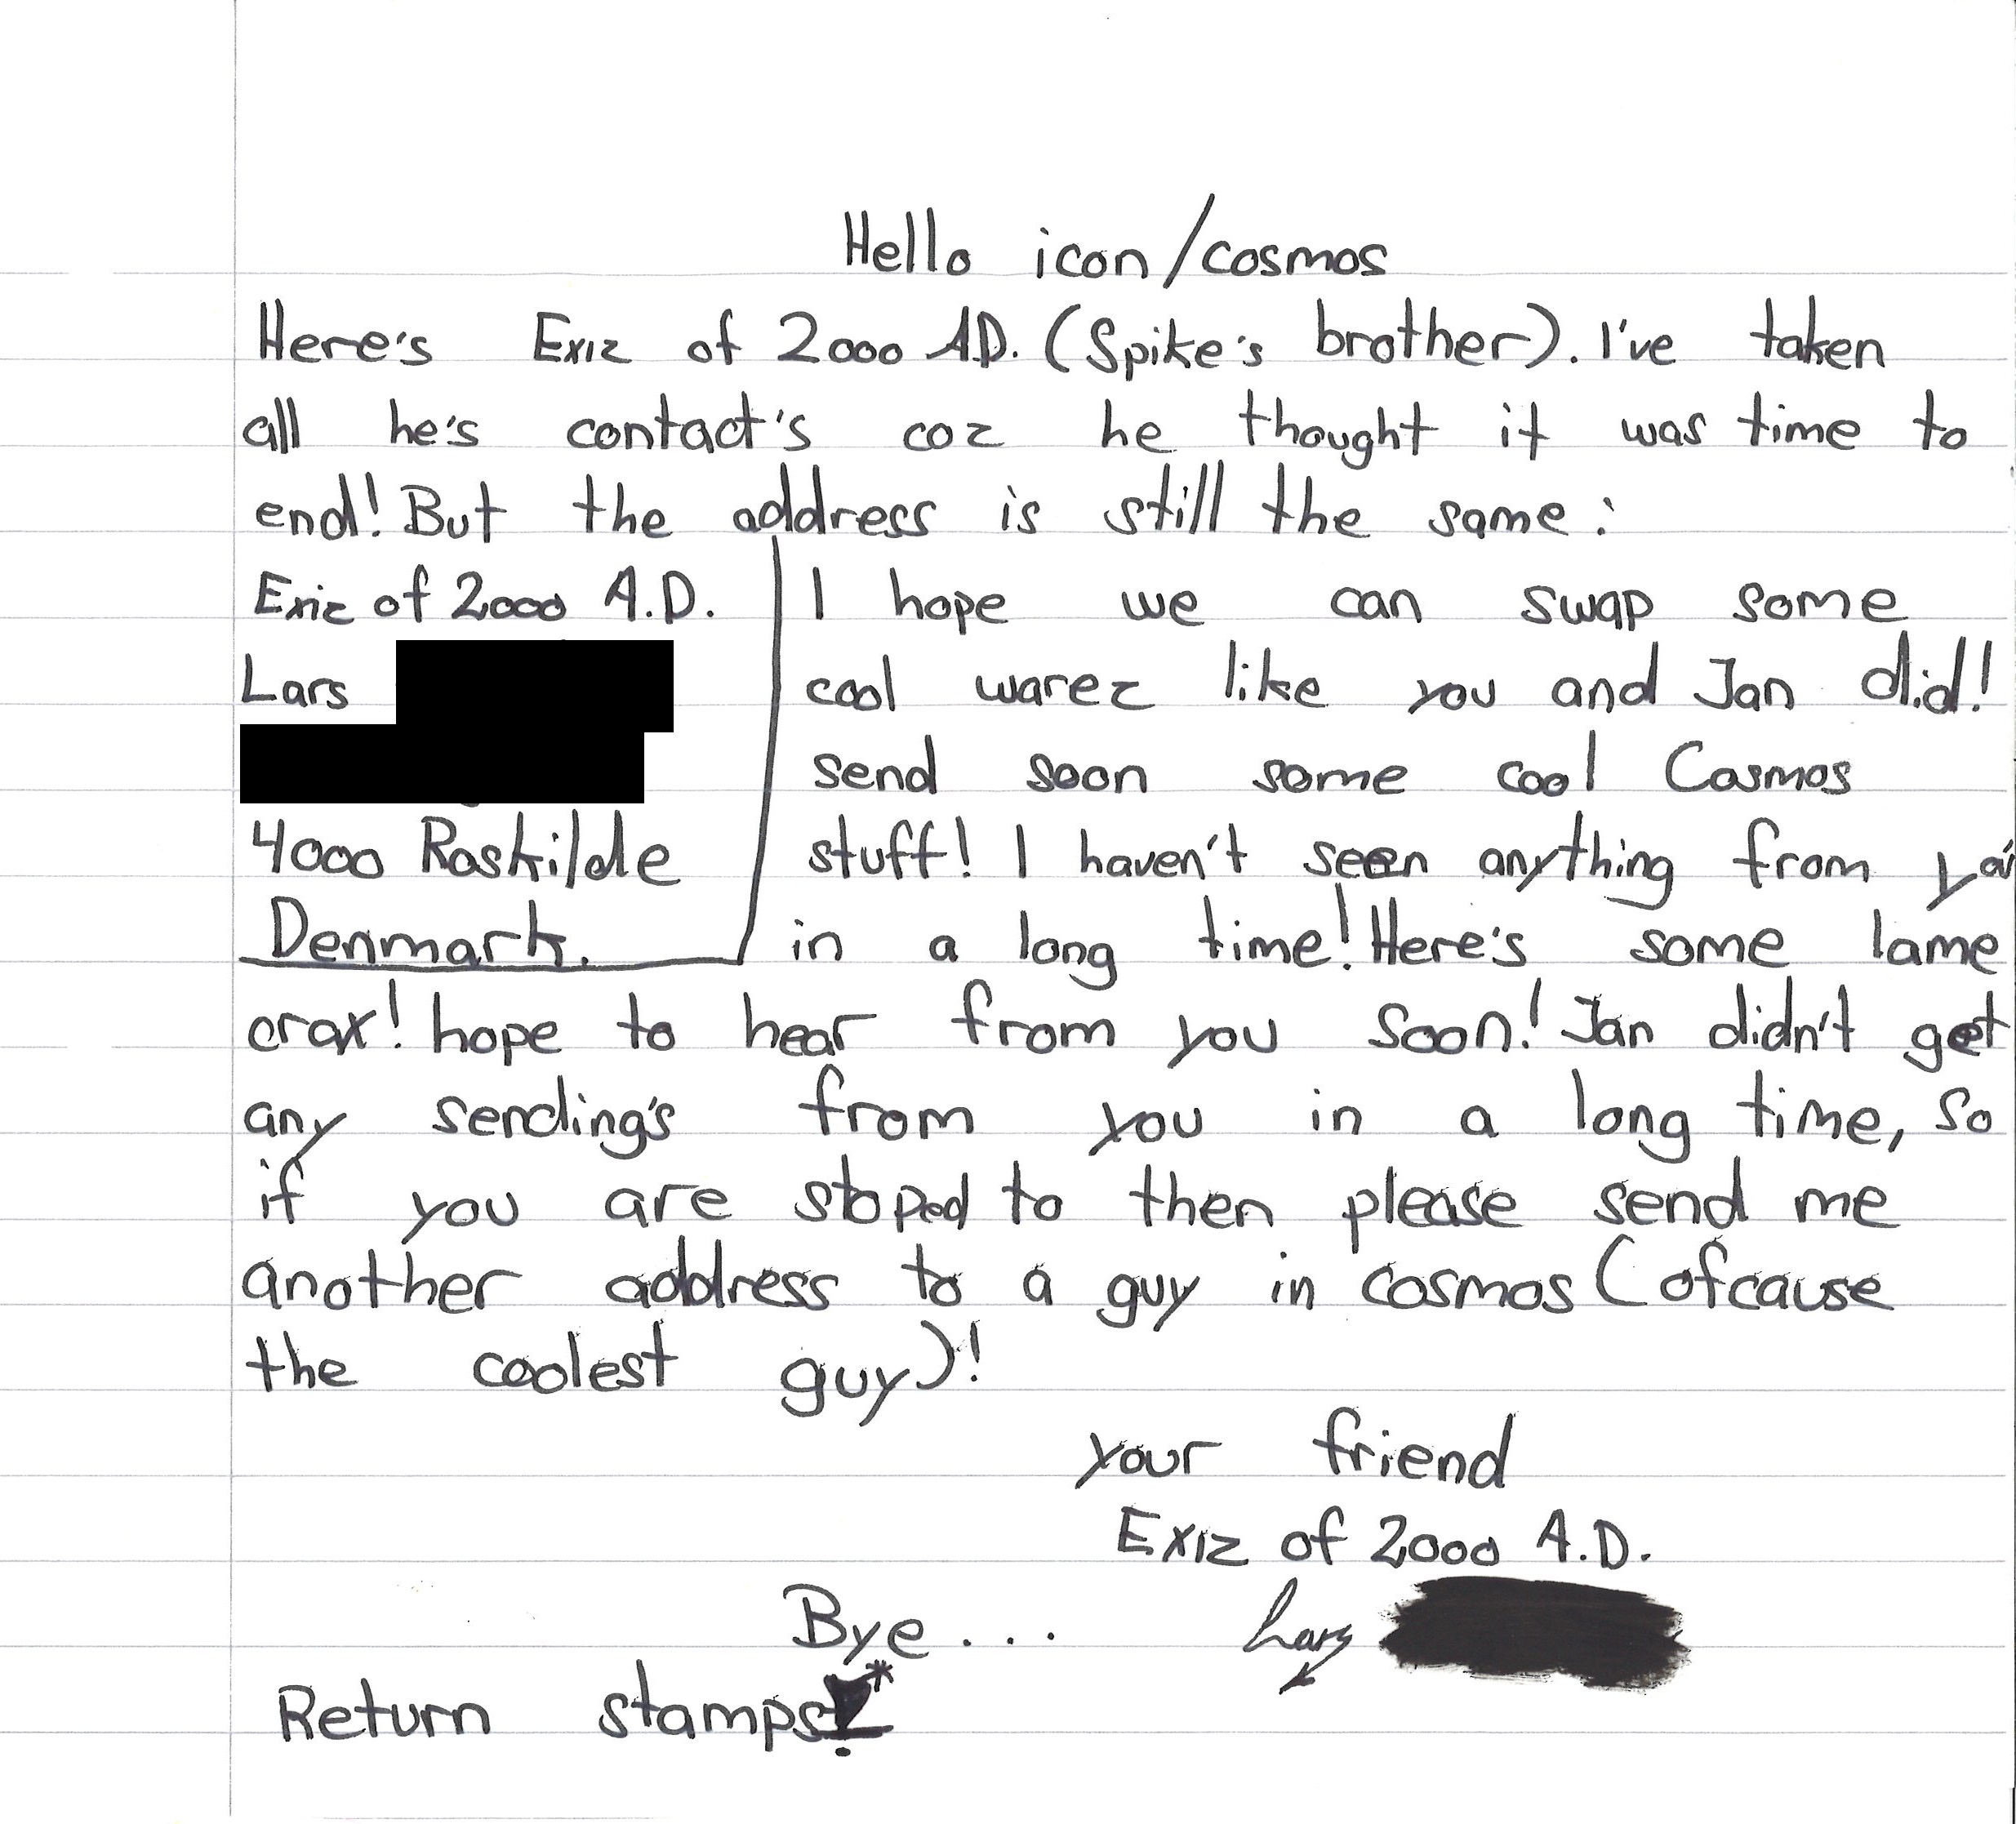 Hello icon/cosmos
Here's Exiz of 2000 AD. (Spike's brother). I've taken
all he's contact's coz he thought it was time to
end! But the address is still the same:
Exiz of 2000 A.D.
Lars
4000 Roskilde
Denmark.
I hope we can swap some
cool warez like you and Jan did!
send soon some cool Cosmos
stuff! I haven't seen anything from you
in a long time! Here's some lame
crax! hope to hear from you soon! Jan didn't get
any sending's from you in a long time, so
if you are stoped to then please send me
another address to a guy in cosmos (ofcause
the coolest guy)!
your friend
Exiz of 2000 A.D.
Bye... Lars
Return stamps!*